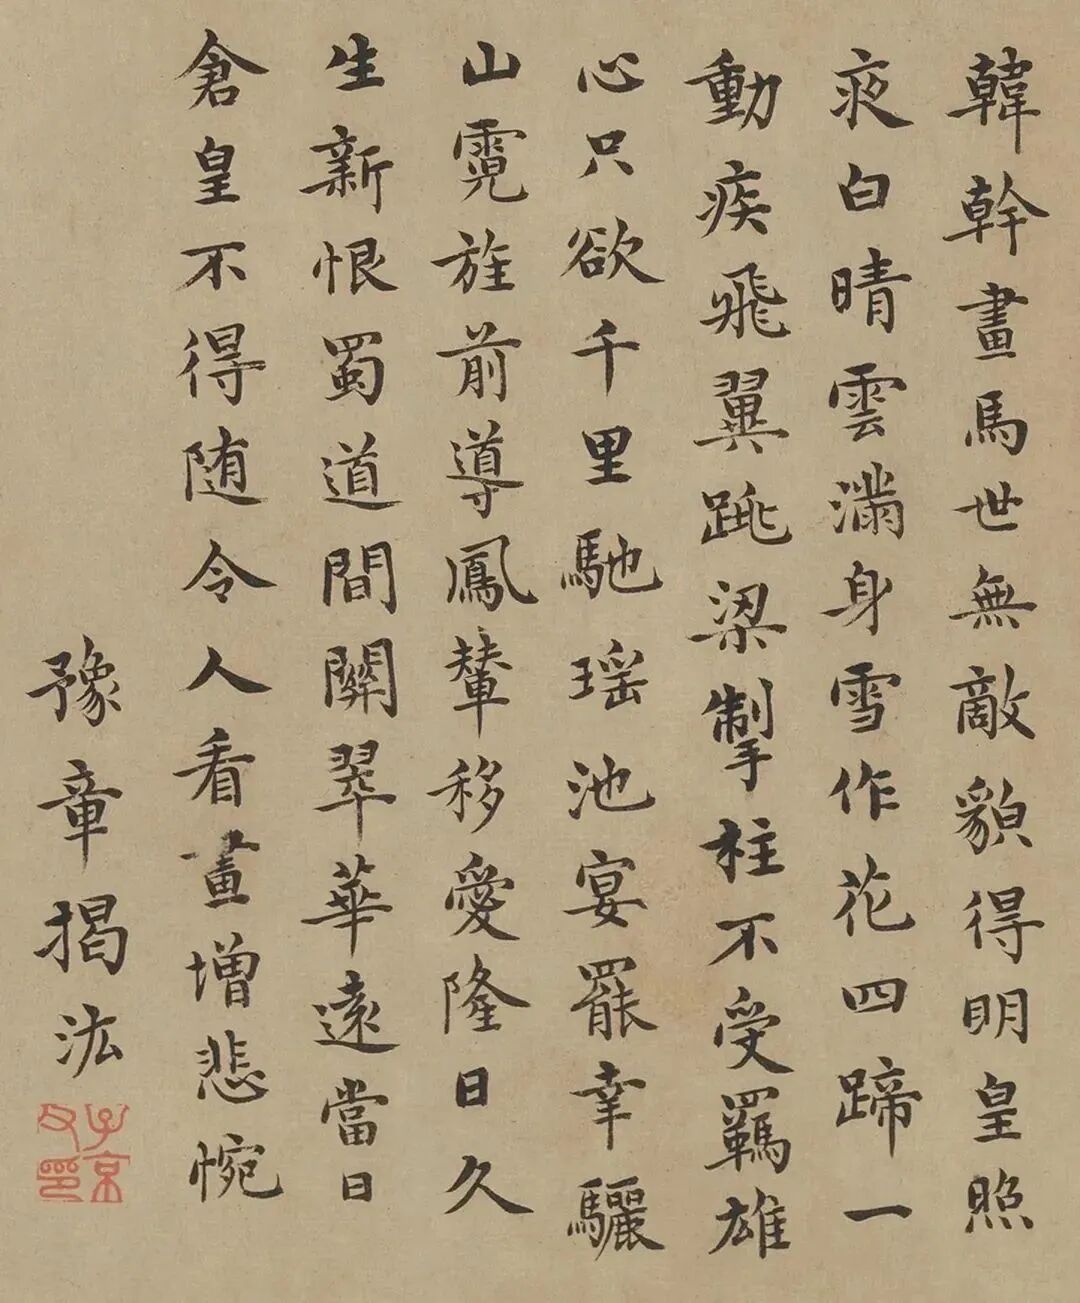 韓幹畫馬世無敵貌得明皇照
夜白晴雲滿身雪作花四蹄一
動疾飛翼跳梁掣柱不受羈雄
心只欲千里馳瑶池宴罷幸驪
山霓旌前導鳳輦移愛隆日久
生新恨蜀道間關翠華遠當日
倉皇不得随令人看畫增悲惋
豫章揭汯
子京
父印